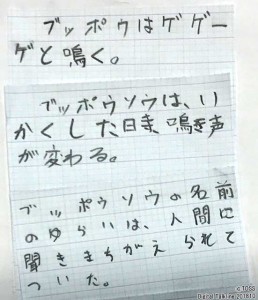 ブッポウはゲゲー
ゲと鳴く。
ブッポウソウは、い
かくした時鳴き声
が変わる。
ブッポウソウの名前
のゆらいは、人間に
聞きまちがえられて
ついた。
© TOSS
Digital Talkline 201810